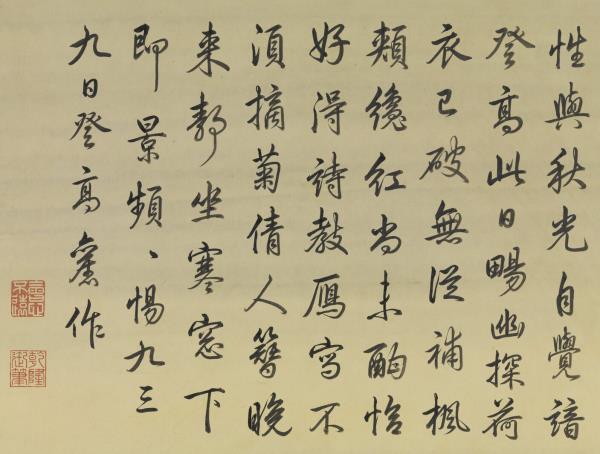 性與秋光自覺諳
登高此日暢幽探荷
衣已破無從補楓
頰纔紅尚未酣恰
好得詩教鴈寫不
須摘菊倩人簪晚
來靜坐寒窓下
即景頻〻惕九三
九日登高舊作
會心不遠
乾隆御筆